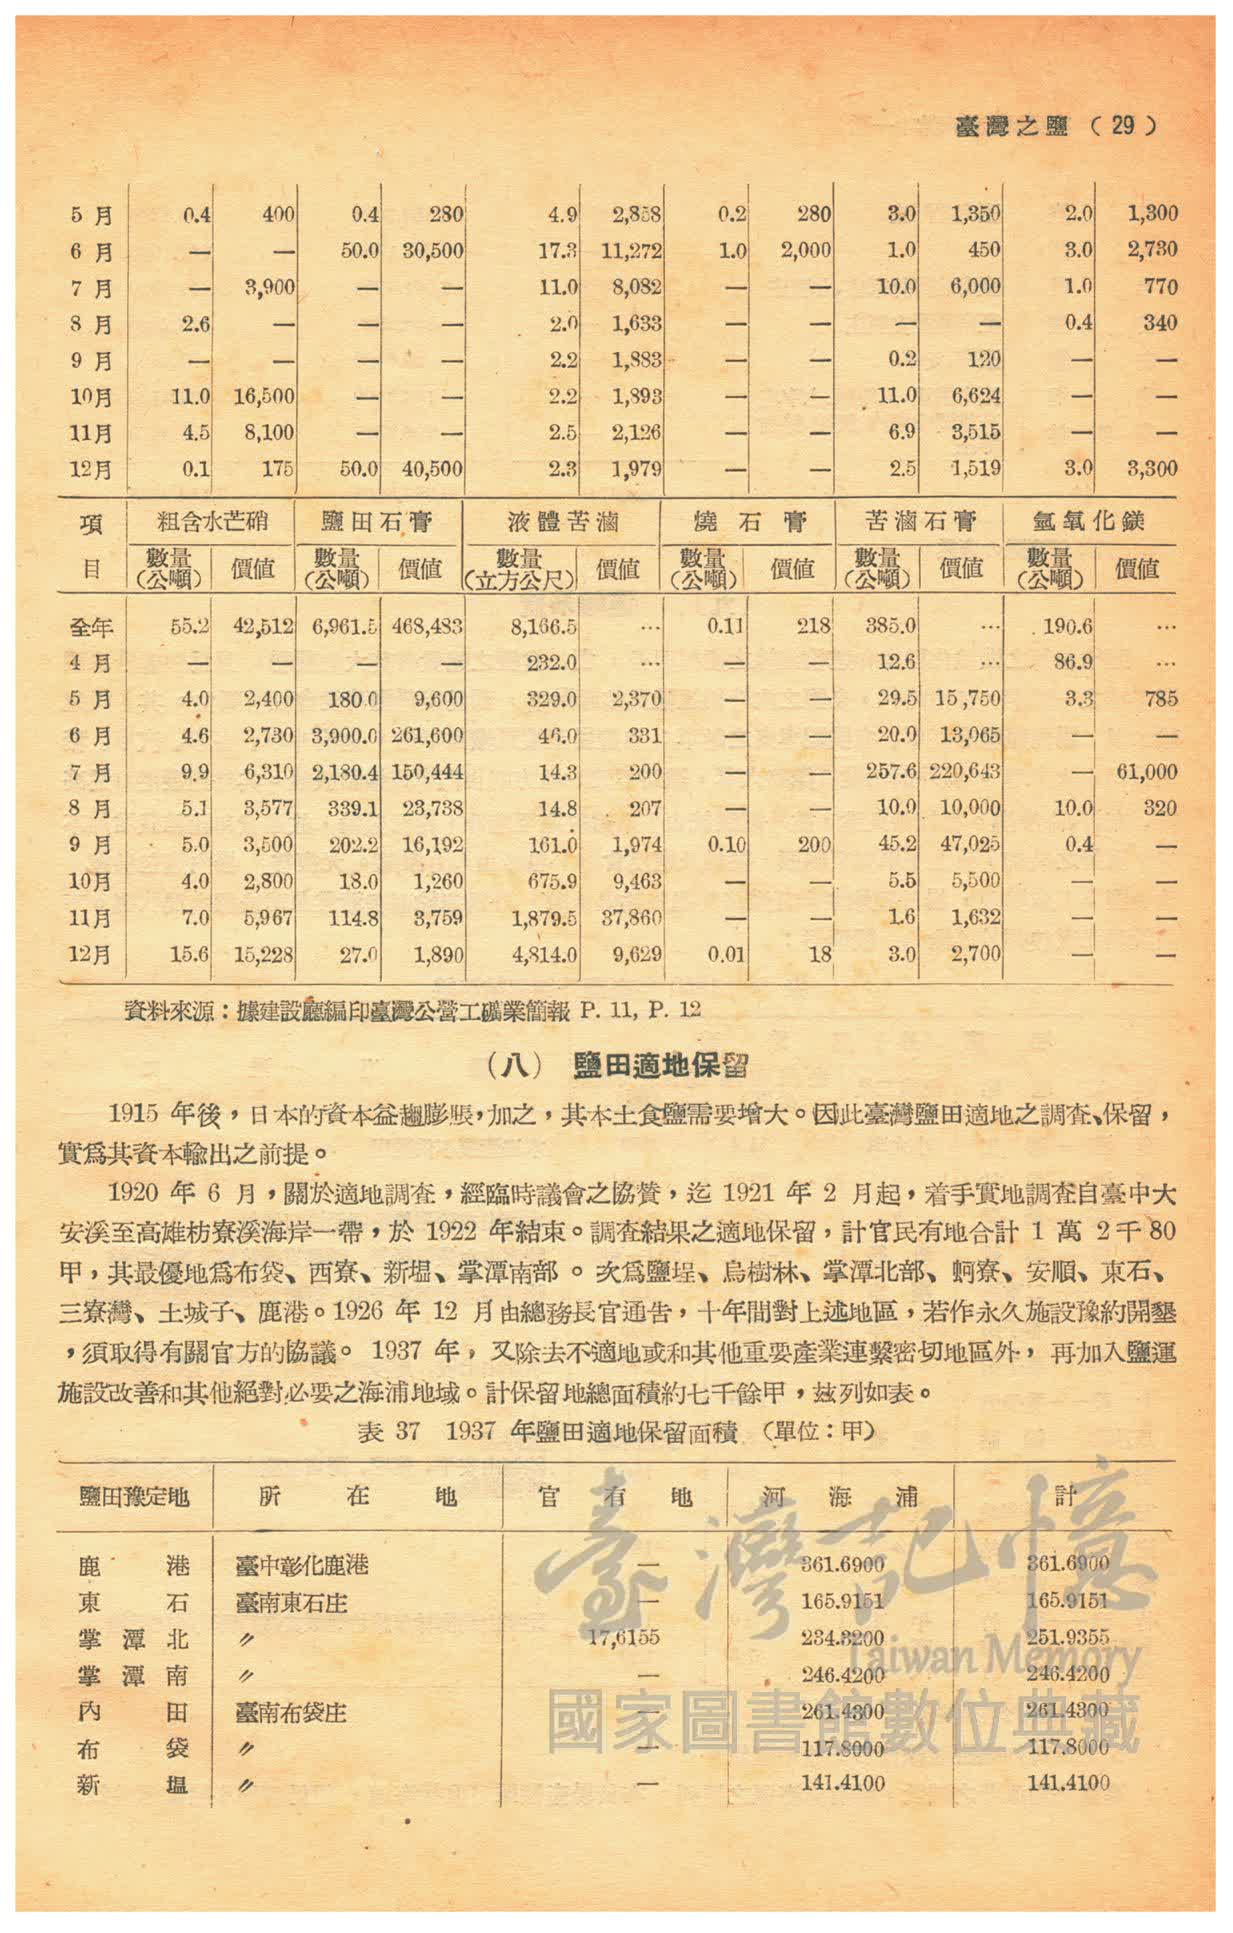 臺灣之鹽（29）
5 月 0.4 400 0.4 280 4.9 2,858 0.2 280 3.0 1,350 2.0 1,300
6 月 — — 50.0 30,500 17.3 11,272 1.0 2,000 1.0 450 3.0 2,730
7 月 — 3,900 — — 11.0 8,082 — — 10.0 6,000 1.0 770
8 月 2.6 — — — 2.0 1,633 — — — — 0.4 340
9 月 — — — — 2.2 1,883 — — 0.2 120 — —
10月 11.0 16,500 — — 2.2 1,893 — — 11.0 6,624 — —
11月 4.5 8,100 — — 2.5 2,126 — — 6.9 3,515 — —
12月 0.1 175 50.0 40,500 2.3 1,979 — — 2.5 1,519 3.0 3,300
項 粗含水芒硝 鹽田石膏 液體苦滷 燒石膏 苦滷石膏 氫氧化鎂
目 數量（公噸） 價值 數量（公噸） 價值 數量（立方公尺） 價值 數量（公噸） 價值 數量（公噸） 價值 數量（公噸） 價值
全年 55.2 42,512 6,961.5 468,483 8,166.5 … 0.11 218 385.0 … 190.6 …
4 月 — — — — 232.0 … — — 12.6 … 86.9 …
5 月 4.0 2,400 180.0 9,600 329.0 2,370 — — 29.5 15,750 3.3 785
6 月 4.6 2,730 3,900.0 261,600 46.0 331 — — 20.0 13,065 — —
7 月 9.9 6,310 2,180.4 150,444 14.3 200 — — 257.6 220,643 — 61,000
8 月 5.1 3,577 339.1 23,738 14.8 207 — — 10.0 10,000 10.0 320
9 月 5.0 3,500 202.2 16,192 161.0 1,974 0.10 200 45.2 47,025 0.4 —
10月 4.0 2,800 18.0 1,260 675.9 9,463 — — 5.5 5,500 — —
11月 7.0 5,967 114.8 3,759 1,879.5 37,860 — — 1.6 1,632 — —
12月 15.6 15,228 27.0 1,890 4,814.0 9,629 0.01 18 3.0 2,700 — —
資料來源：據建設廳編印臺灣公營工礦業簡報 P. 11, P. 12
（八） 鹽田適地保留
1915 年後，日本的資本益趨膨脹，加之，其本土食鹽需要增大。因此臺灣鹽田適地之調查、保留，
實爲其資本輸出之前提。
1920 年 6 月，關於適地調查，經臨時議會之協贊，迄 1921 年 2 月起，着手實地調查自臺中大
安溪至高雄枋寮溪海岸一帶，於 1922 年結束。調查結果之適地保留，計官民有地合計 1 萬 2千 80
甲，其最優地爲布袋、西寮、新塭、掌潭南部 。次爲鹽埕、烏樹林、掌潭北部、蚵寮、安順、東石、
三寮灣、土城子、鹿港。1926 年 12 月由總務長官通告，十年間對上述地區，若作永久施設豫約開墾
，須取得有關官方的協議。 1937 年，又除去不適地或和其他重要產業連繫密切地區外， 再加入鹽運
施設改善和其他絕對必要之海浦地域。計保留地總面積約七千餘甲，玆列如表。
表 37 1937 年鹽田適地保留面積 （單位：甲）
鹽田豫定地 所在地 官有地 河海浦 計
鹿港 臺中彰化鹿港 — 361.6900 361.6900
東石 臺南東石庄 — 165.9151 165.9151
掌潭北 〃 17,6155 234.3200 251.9355
掌潭南 〃 — 246.4200 246.4200
內田 臺南布袋庄 — 261.4300 261.4300
布袋 〃 — 117.8000 117.8000
新塭 〃 — 141.4100 141.4100
臺灣記憶
Taiwan Memory
國家圖書館數位典藏